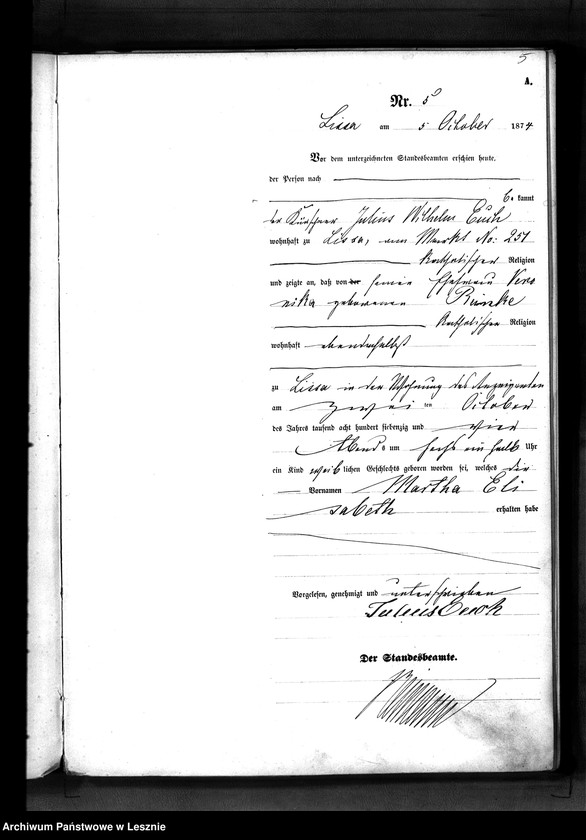 5
A.
Nr. 5
Lissa am 5 October 1874
Vor dem unterzeichneten Standesbeamten erschien heute,
der Person nach
be kannt
der Kürschner Julius Wilhelm
wohnhaft zu Lissa, am Markt No: 251
katholischer Religion
und zeigte an, daß von der seiner Ehefrau Vero
nika geborenen
katholischer Religion
wohnhaft ebendaselbst
zu Lissa in der Wohnung des Anzeigenden
am zwei ten October
des Jahres tausend acht hundert siebenzig und vier
Abends um sechs ein halb Uhr
ein Kind weib lichen Geschlechts geboren worden sei, welches die
Vornamen Martha Eli
sabeth erhalten habe
Vorgelesen, genehmigt und unterschrieben
Julius
Der Standesbeamte.
Archiwum Państwowe w Lesznie